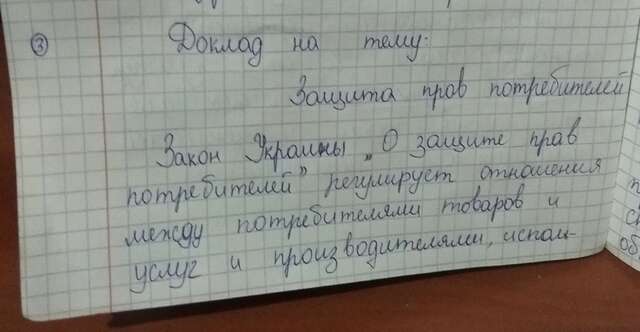 ③ Доклад на тему:
Защита прав потребителей
Закон Украины „О защите прав
потребителей" регулирует отношения
между потребителями товаров и
услуг и производителями, испол-
п
с
об